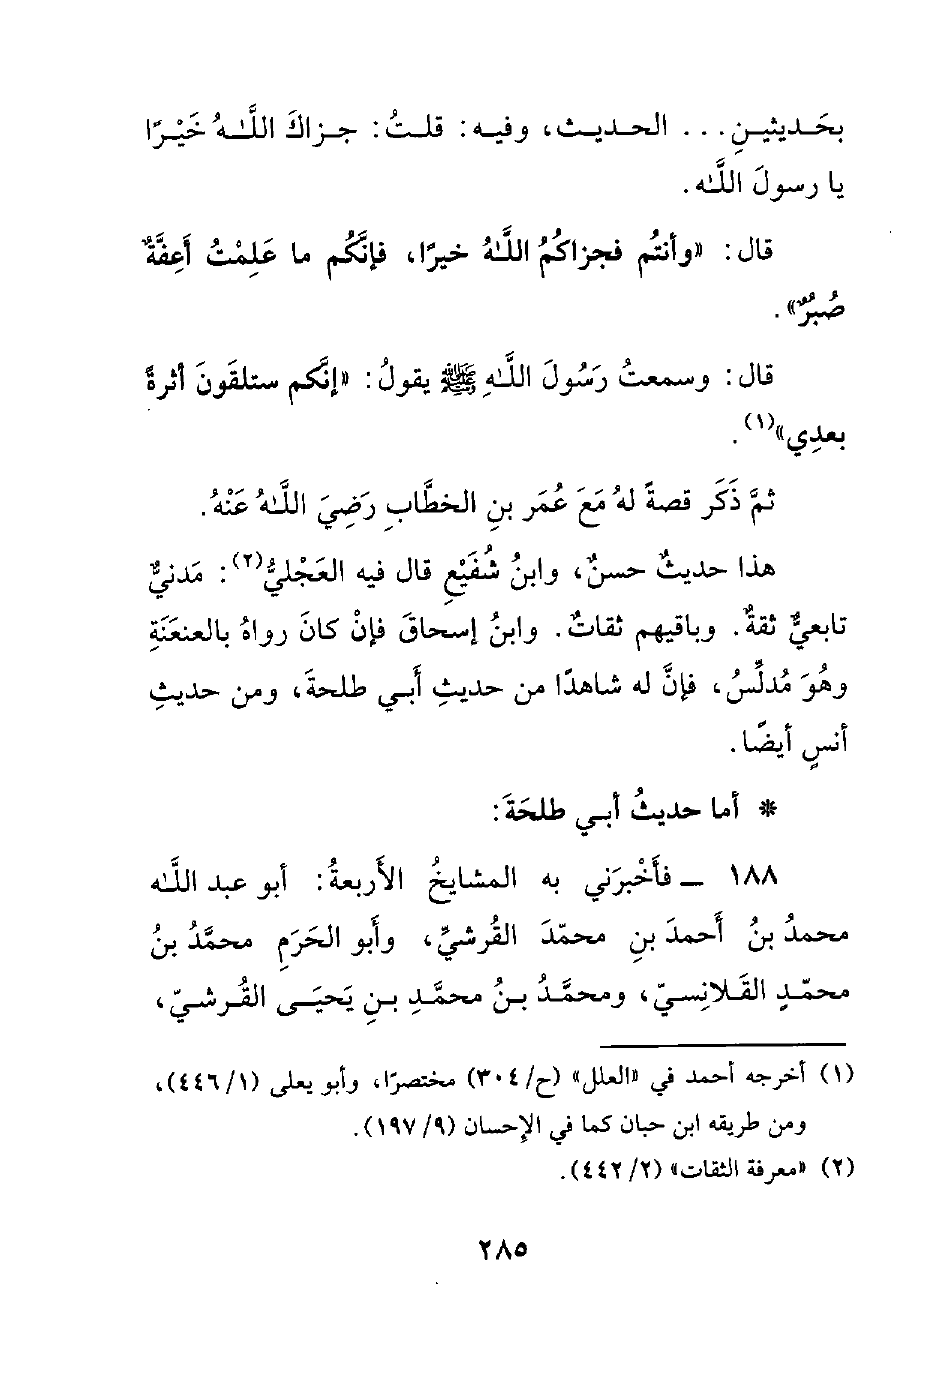 بحَديثينِ... الحديث، وفيه: قلتُ: جزاكَ اللَّهُ خَيْرًا
يا رسولَ اللَّه.
قال: «وأنتُم فجزاكُمُ اللَّهُ خيرًا، فإنَّكُم ما عَلِمْتُ أَعِفَّةٌ
صُبُرٌ».
قال: وسمعتُ رَسُولَ اللَّهِ ﷺ يقولُ: «إنَّكم ستلقَونَ أثرةً
بعدِي»(١).
ثمَّ ذَكَر قصةً لهُ مَعَ عُمَر بنِ الخطَّابِ رَضِيَ اللَّهُ عَنْهُ.
هذا حديثٌ حسنٌ، وابنُ شُفَيْعٍ قال فيه العَجْليُّ(٢): مَدنيٌّ
تابعيٌّ ثقةٌ. وباقيهم ثقاتٌ. وابنُ إسحاقَ فإنْ كانَ رواهُ بالعنعَنَةِ
وهُوَ مُدلِّسُ، فإنَّ له شاهدًا من حديثِ أَبي طلحةَ، ومن حديثِ
أنسٍ أيضًا.
* أما حديثُ أبي طلحَةَ:
١٨٨ ــ فأَخْبرَني به المشايخُ الأَربعةُ: أبو عبد اللَّه
محمدُ بنُ أَحمدَ بنِ محمّدَ القُرشيِّ، وأَبو الحَرَمِ محمَّدُ بنُ
محمّدٍ القَلانِسيّ، ومحمَّدُ بنُ محمَّدِ بنِ يَحيَى القُرشيّ،
(١) أخرجه أحمد في «العلل» (ح/٣٠٤) مختصرًا، وأبو يعلى (١/٤٤٦)،
ومن طريقه ابن حبان كما في الإحسان (٩/١٩٧).
(٢) «معرفة الثقات» (٢/٤٤٢).
٢٨٥